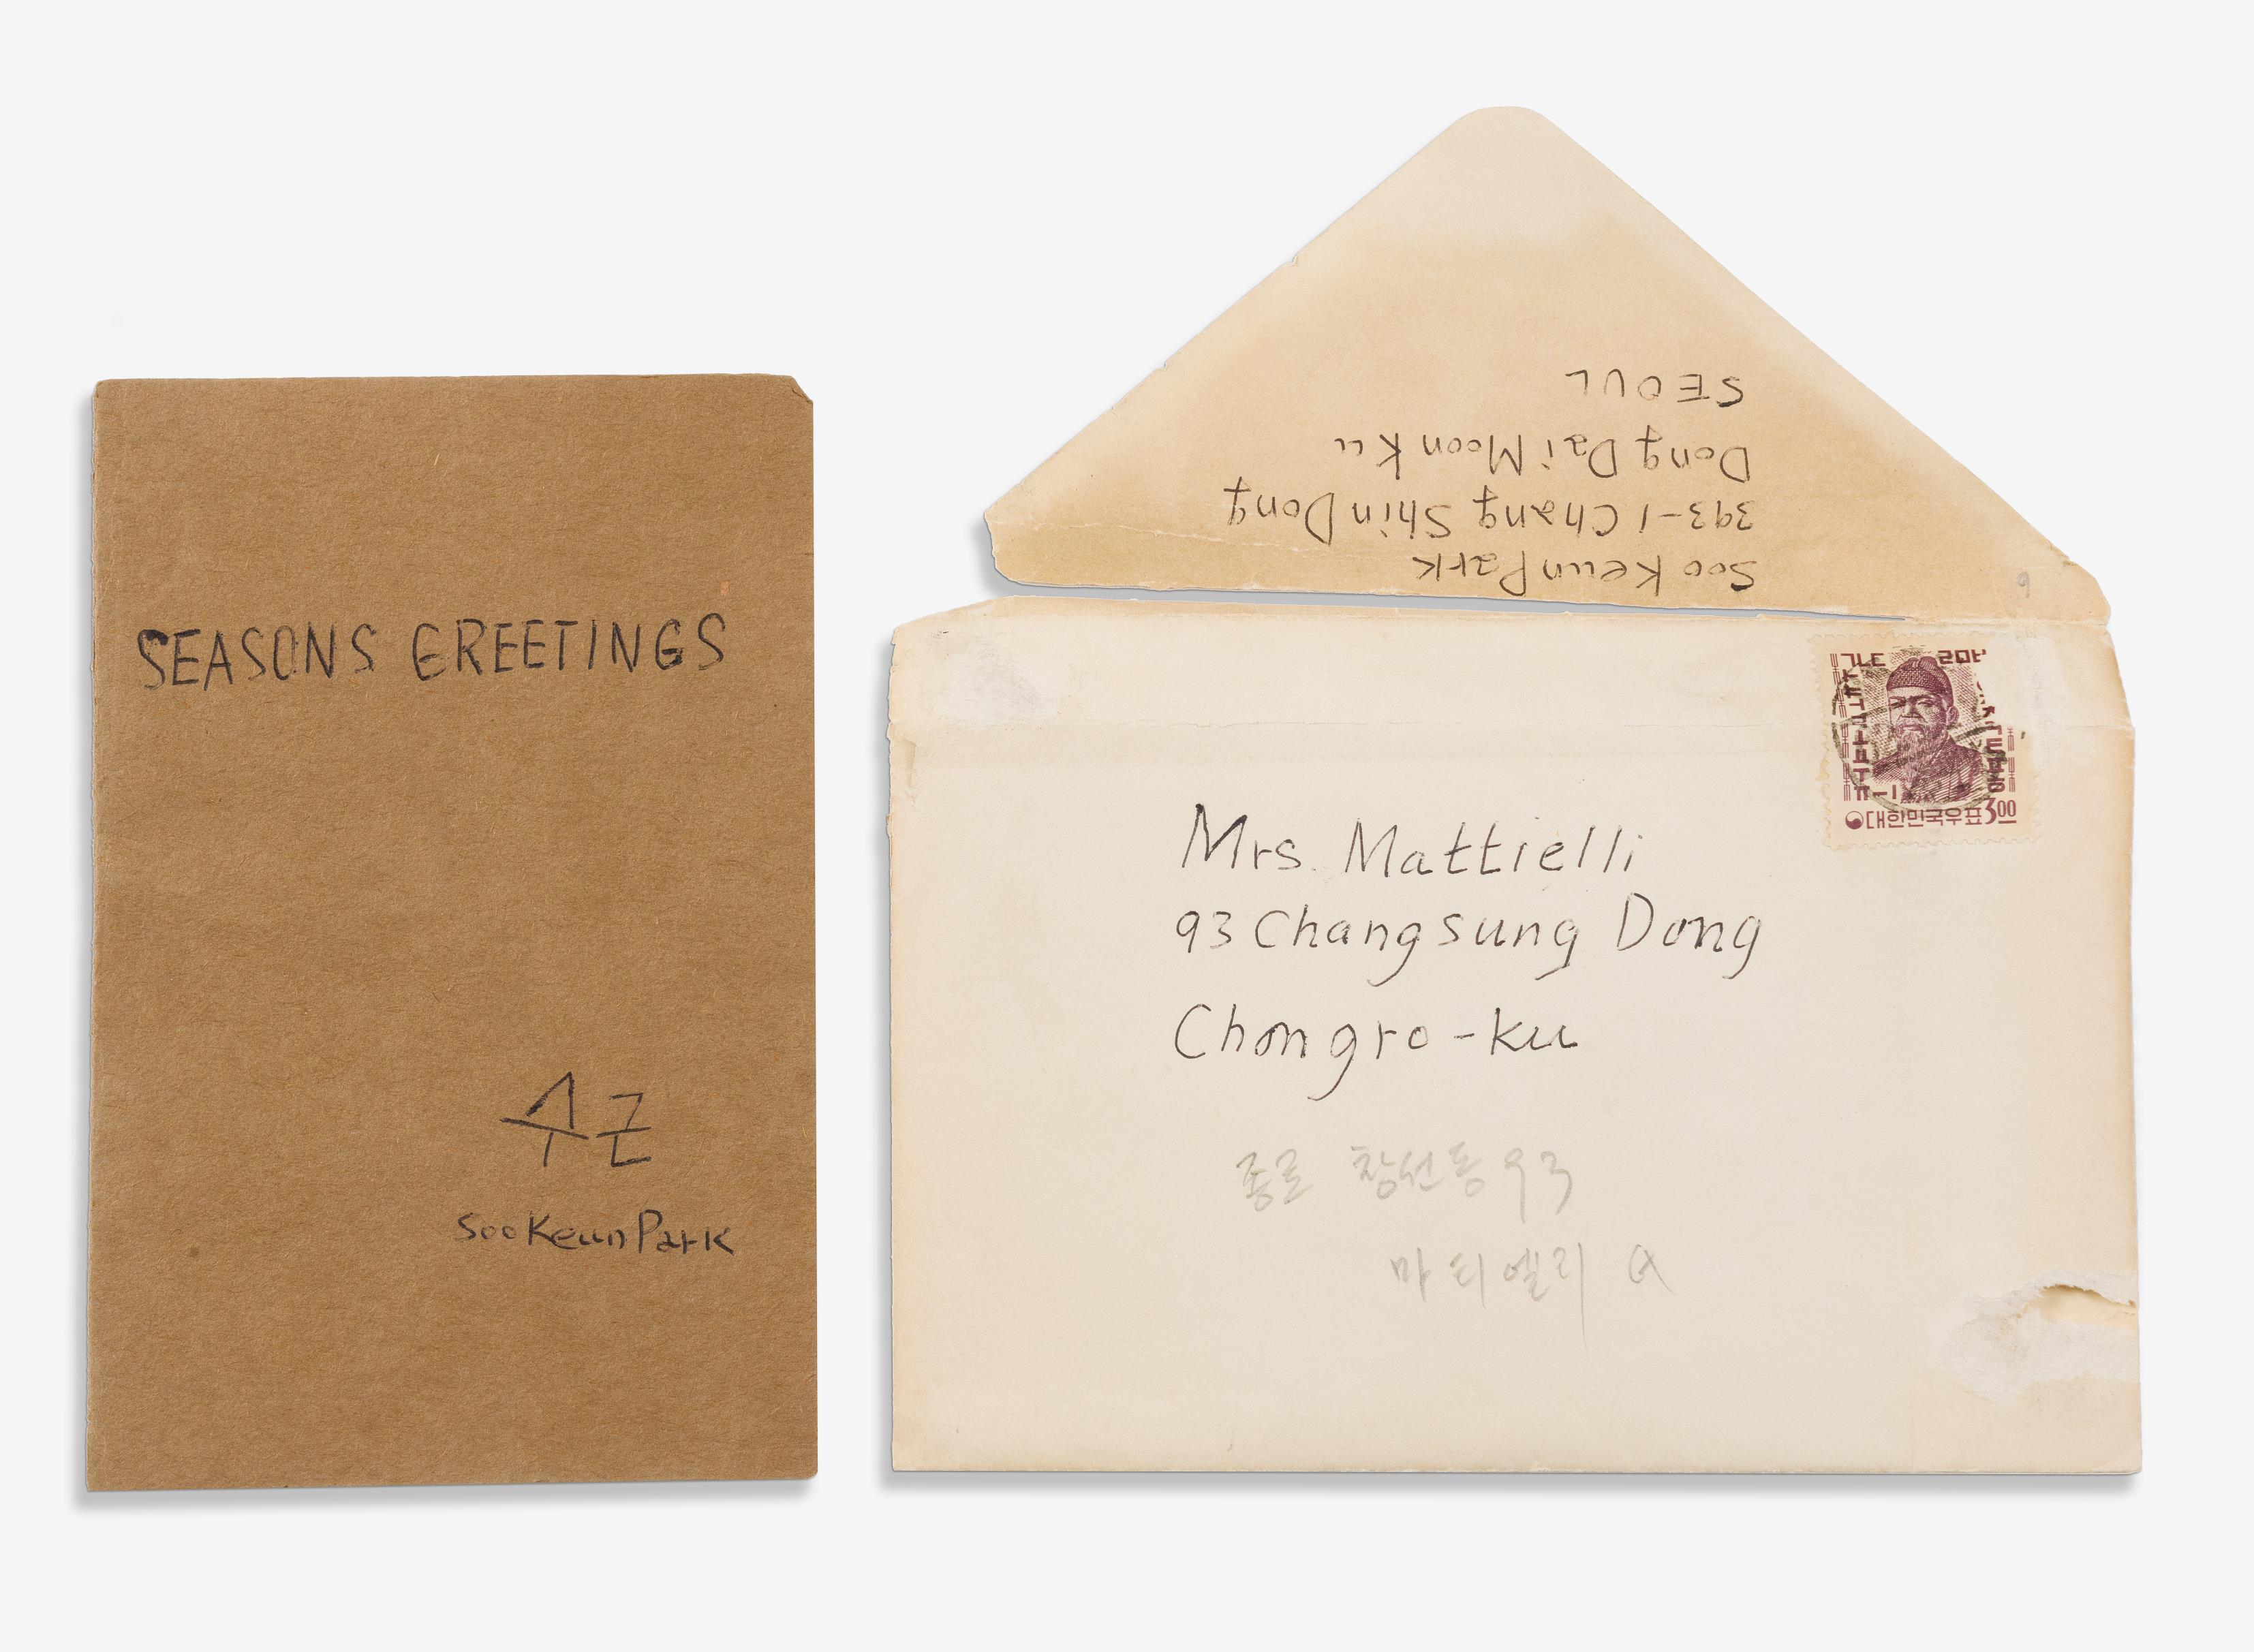 SEASONS GREETINGS
수근
Soo Keun Park
SEOUL
Dong Dai Moon Ku
393-1 Chang Shin Dong
Soo Keun Park
대한민국우표 3.00
Mrs. Mattielli
93 Changsung Dong
Chongro-ku
종로 창선동 93
마티엘리